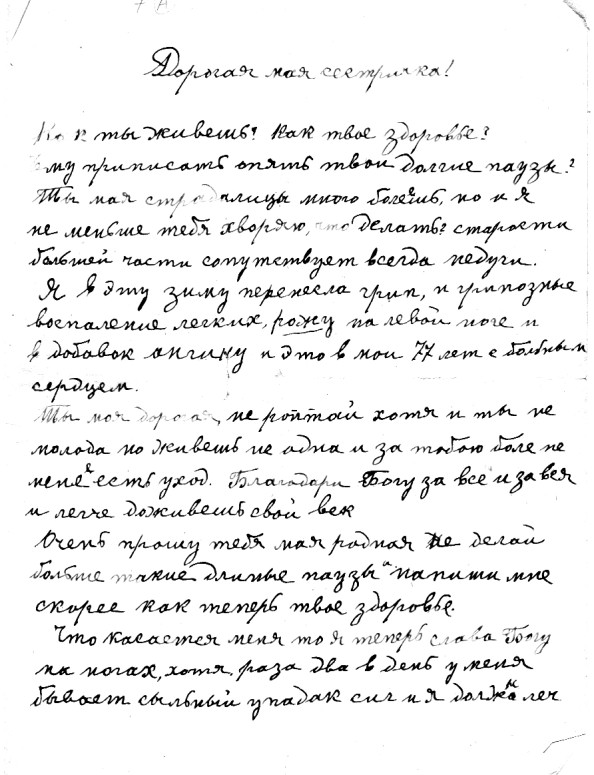 7 А
Дорогая моя сестричка!
Как ты живешь? Как твое здоровье?
Чему приписать опять твои долгие паузы?
Ты моя страдалицы много болеешь, но и я
не меньше тебя хворяю, что делать? старости
большей части сопутствует всегда недуги.
Я в эту зиму перенесла грип, и грипозные
воспаление легких, рожу на левой ноге и
в добавок ангину и это в мои 77 лет с больным
сердцем.
Ты моя дорогая, не роптай хотя и ты не
молода но живешь не одна и за тобою боле не
менее есть уход. Благодари Богу за все и за вся
и легче доживешь свой век
Очень прошу тебя моя родная не делай
больше такие длиные паузы и напиши мне
скорее как теперь твое здоровье.
Что касается меня то я теперь слава Богу
на ногах, хотя, раза два в день у меня
бывает сыльный упадак сил и я должна леч